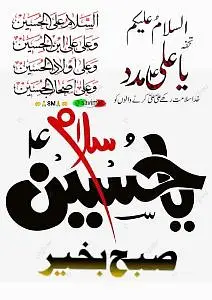 السلام علیکم
تحفہ
یا علی مدد
خدا سلامت رکھے علی علی کرنے والوں کو
السلام علی الحسین
وعلی علی ابن الحسین
وعلی اولاد الحسین
وعلی اصحاب الحسین
SM
سلام
یا حسین
صبح بخیر